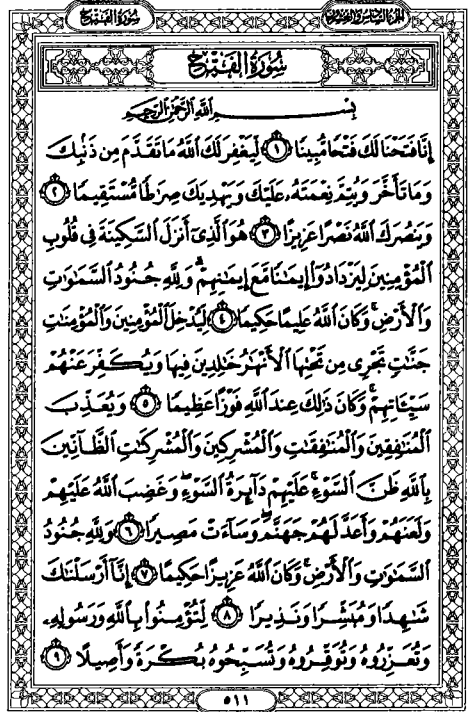 سُورَةُ الفَتْحِ الجُزْءُ السَّادِسُ وَالعِشْرُونَ
سُورَةُ الفَتْحِ
بِسْمِ اللَّهِ الرَّحْمَٰنِ الرَّحِيمِ
إِنَّا فَتَحْنَا لَكَ فَتْحًا مُّبِينًا ١ لِّيَغْفِرَ لَكَ اللَّهُ مَا تَقَدَّمَ مِن ذَنۢبِكَ
وَمَا تَأَخَّرَ وَيُتِمَّ نِعْمَتَهُۥ عَلَيْكَ وَيَهْدِيَكَ صِرَٰطًا مُّسْتَقِيمًا ٢
وَيَنصُرَكَ اللَّهُ نَصْرًا عَزِيزًا ٣ هُوَ الَّذِىٓ أَنزَلَ السَّكِينَةَ فِى قُلُوبِ
الْمُؤْمِنِينَ لِيَزْدَادُوٓا۟ إِيمَٰنًا مَّعَ إِيمَٰنِهِمْ ۗ وَلِلَّهِ جُنُودُ السَّمَٰوَٰتِ
وَالْأَرْضِ ۚ وَكَانَ اللَّهُ عَلِيمًا حَكِيمًا ٤ لِّيُدْخِلَ الْمُؤْمِنِينَ وَالْمُؤْمِنَٰتِ
جَنَّٰتٍ تَجْرِى مِن تَحْتِهَا الْأَنْهَٰرُ خَٰلِدِينَ فِيهَا وَيُكَفِّرَ عَنْهُمْ
سَيِّـَٔاتِهِمْ ۚ وَكَانَ ذَٰلِكَ عِندَ اللَّهِ فَوْزًا عَظِيمًا ٥ وَيُعَذِّبَ
الْمُنَٰفِقِينَ وَالْمُنَٰفِقَٰتِ وَالْمُشْرِكِينَ وَالْمُشْرِكَٰتِ الظَّآنِّينَ
بِاللَّهِ ظَنَّ السَّوْءِ ۚ عَلَيْهِمْ دَآئِرَةُ السَّوْءِ ۖ وَغَضِبَ اللَّهُ عَلَيْهِمْ
وَلَعَنَهُمْ وَأَعَدَّ لَهُمْ جَهَنَّمَ ۖ وَسَآءَتْ مَصِيرًا ٦ وَلِلَّهِ جُنُودُ
السَّمَٰوَٰتِ وَالْأَرْضِ ۚ وَكَانَ اللَّهُ عَزِيزًا حَكِيمًا ٧ إِنَّآ أَرْسَلْنَٰكَ
شَٰهِدًا وَمُبَشِّرًا وَنَذِيرًا ٨ لِّتُؤْمِنُوا۟ بِاللَّهِ وَرَسُولِهِۦ
وَتُعَزِّرُوهُ وَتُوَقِّرُوهُ وَتُسَبِّحُوهُ بُكْرَةً وَأَصِيلًا ٩
٥١١